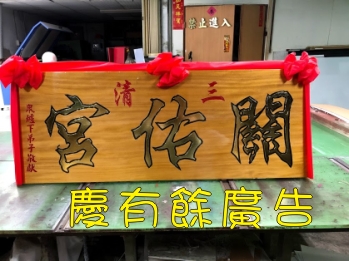 禁止進入
三清
關佑宮
眾爐下弟子敬獻
慶有餘廣告